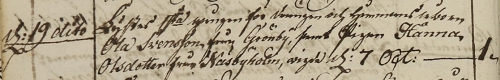 d: 19 dito Lystes 1sta gången för Drängen och hemmans åboen
Ola Svensson från Grönby, samt Pigan Hanna
Olsdotter från Näsbyholm, vigde d: 7 Oct: — 1.